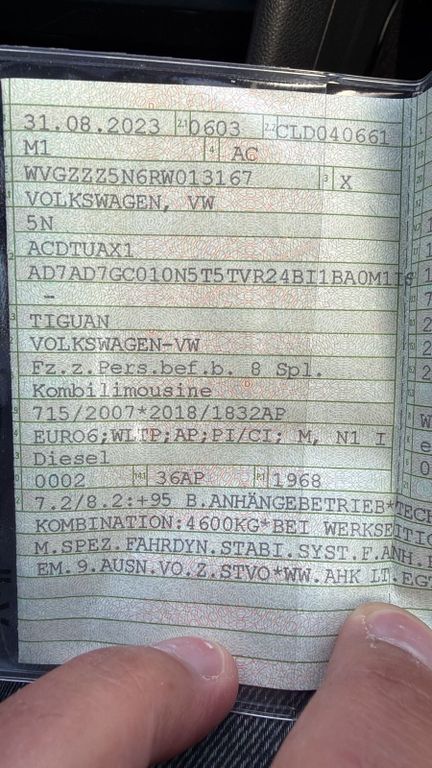 31.08.2023 2.1 0603 2.2 CLD040661
M1 4 AC
WVGZZZ5N6RW013167 3 X
VOLKSWAGEN, VW
5N
ACDTUAX1
AD7AD7GC010N5T5TVR24BI1BA0M1
–
TIGUAN
VOLKSWAGEN-VW
Fz.z.Pers.bef.b. 8 Spl.
Kombilimousine
715/2007*2018/1832AP
EURO6;WLTP;AP;PI/CI; M, N1 I
Diesel
0002 36AP 1968
7.2/8.2:+95 B.ANHÄNGEBETRIEB*TECH
KOMBINATION:4600KG*BEI WERKSEITIG
M.SPEZ.FAHRDYN.STABI.SYST.F.ANH.
EM.9.AUSN.VO.Z.STVO*WW.AHK LT.EGT